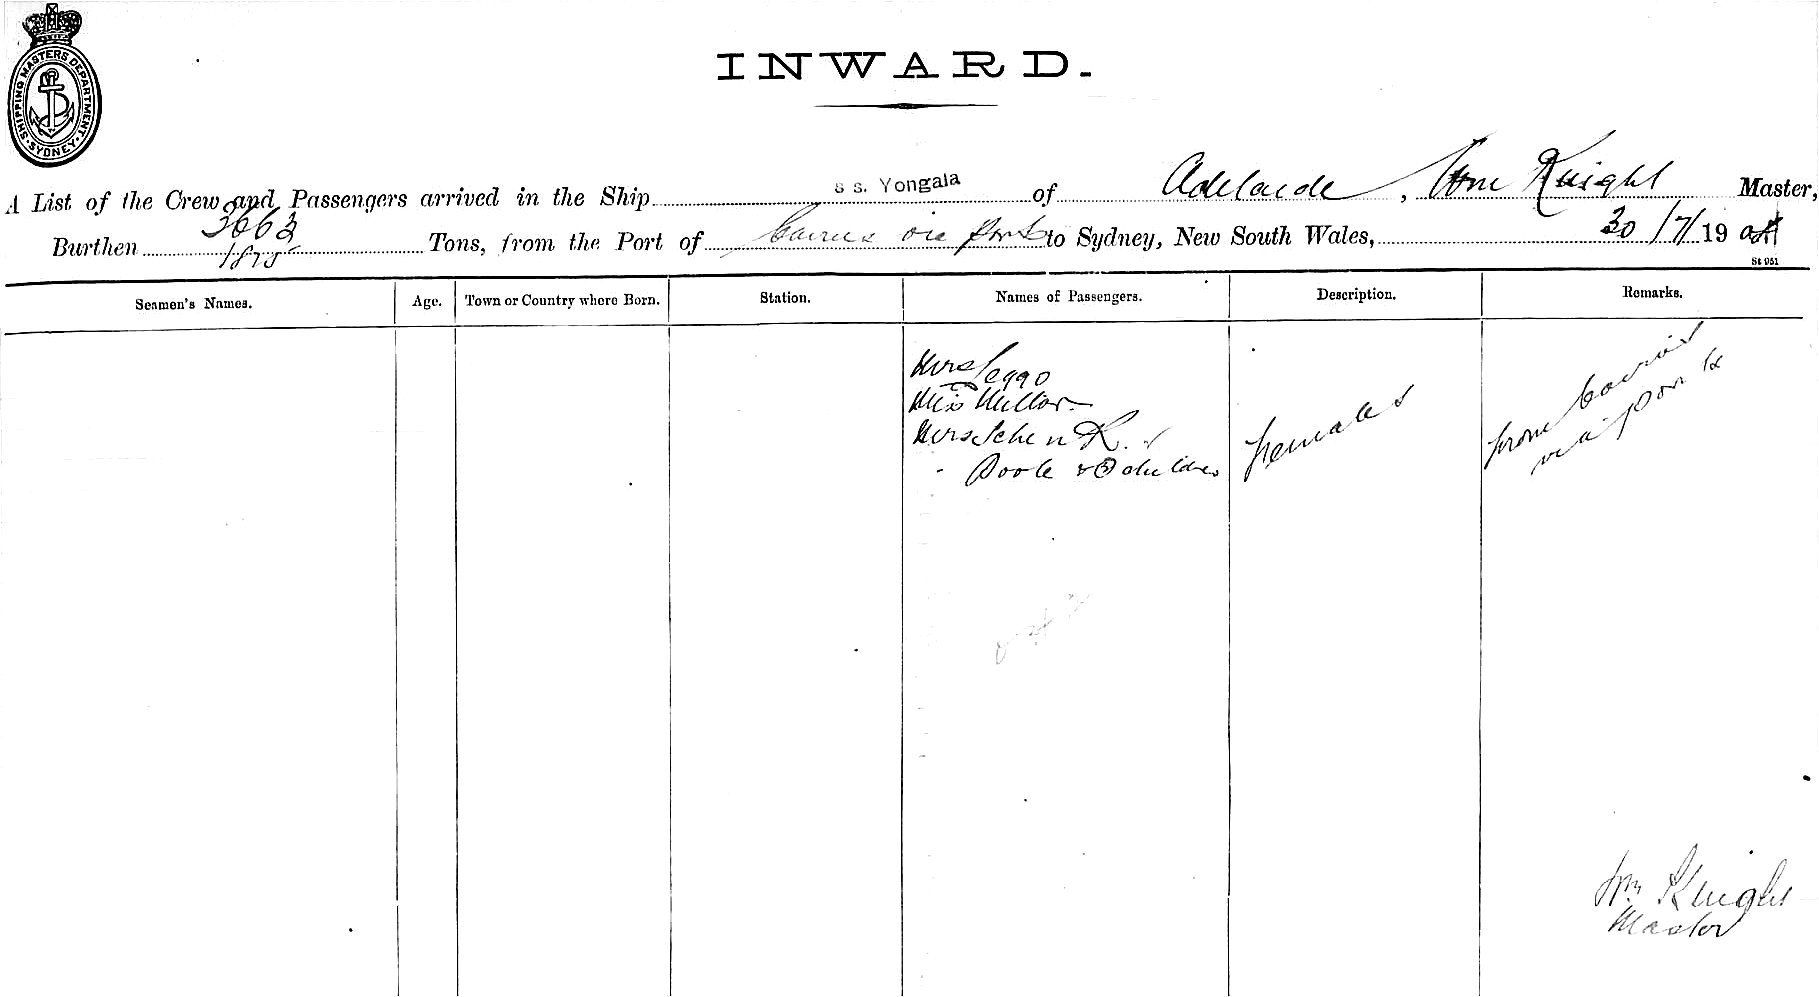 SHIPPING MASTERS DEPARTMENT.
SYDNEY
INWARD.
A List of the Crew and Passengers arrived in the Ship s s. Yongala of Adelaide, Wm Knight Master,
Burthen 3663 Tons, from the Port of Cairns via ports to Sydney, New South Wales, 30/7/19
1825
St 951
Seamen's Names. Age. Town or Country where Born. Station. Names of Passengers. Description. Remarks.
Mrs Leggo
Miss Millar
Mrs Schenk
" Poole & 2 children
Females
from Cairns
via ports
Wm Knight
Master